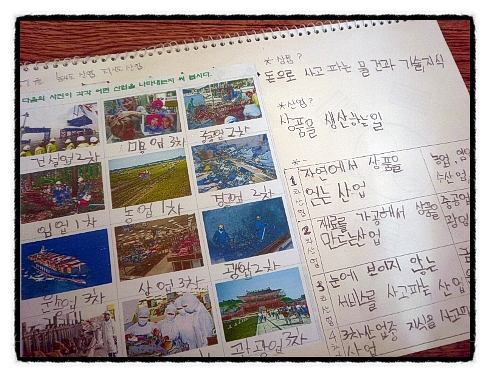 다음의 사진이 각각 어떤 산업을 나타내는지 써 봅시다.
건설업 2차
미용업 3차
중공업 2차
임업 1차
농업 1차
경공업 2차
운수업 3차
상업 3차
광업 2차
관광업 3차
* 상품?
돈으로 사고 파는 물건과 기술,지식
* 산업?
상품을 생산하는일
*
1
자연에서 상품을
얻는 산업
농업,
수산업,
2
재료를 가공해서 상품을
만드는산업
중공업
광업
3
눈에 보이지 않는
서비스를 사고파는 산업
4
3차산업중 지식을 사고파
산업